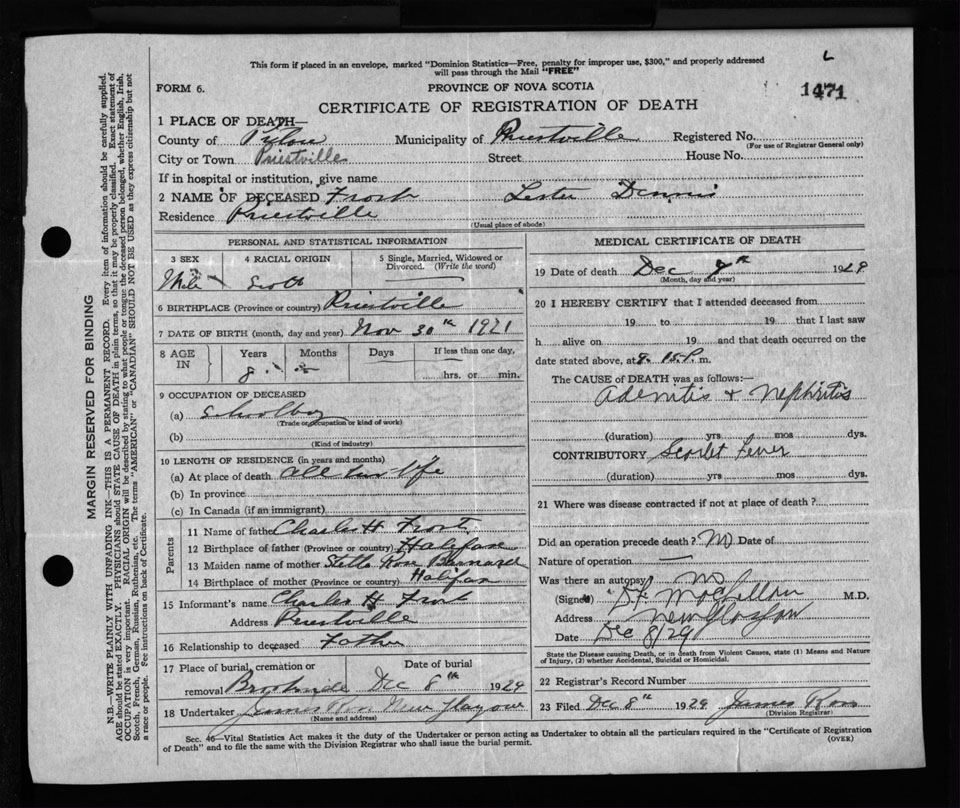 This form if placed in an envelope, marked "Dominion Statistics—Free, penalty for improper use, $300," and properly addressed
will pass through the Mail "FREE"
L
FORM 6.
PROVINCE OF NOVA SCOTIA
1471
CERTIFICATE OF REGISTRATION OF DEATH
1 PLACE OF DEATH—
County of Pictou Municipality of Priestville Registered No.
(For use of Registrar General only)
City or Town Priestville Street House No.
If in hospital or institution, give name
2 NAME OF DECEASED Frost Lester Dennis
Residence Priestville
(Usual place of abode)
PERSONAL AND STATISTICAL INFORMATION
3 SEX 4 RACIAL ORIGIN 5 Single, Married, Widowed or Divorced. (Write the word)
Scott
6 BIRTHPLACE (Province or country) Priestville
7 DATE OF BIRTH (month, day and year) Nov 30th 1921
8 AGE IN Years Months Days If less than one day,
8 hrs. or min.
9 OCCUPATION OF DECEASED
(a) Schoolboy
(Trade or occupation or kind of work)
(b)
(Kind of industry)
10 LENGTH OF RESIDENCE (in years and months)
(a) At place of death all his life
(b) In province
(c) In Canada (if an immigrant)
Parents
11 Name of father Charles H Frost
12 Birthplace of father (Province or country) Halifax
13 Maiden name of mother Stella Rose Barnard
14 Birthplace of mother (Province or country) Halifax
15 Informant's name Charles H Frost
Address Priestville
16 Relationship to deceased Father
17 Place of burial, cremation or removal Date of burial
Brookside Dec 8th 1929
18 Undertaker James Ross New Glasgow
(Name and address)
MEDICAL CERTIFICATE OF DEATH
19 Date of death Dec 1929
(Month, day and year)
20 I HEREBY CERTIFY that I attended deceased from
19 to 19 that I last saw
h alive on 19 and that death occurred on the
date stated above, at 9.15 P. m.
The CAUSE OF DEATH was as follows:—
Adenitis & Nephritis
(duration) yrs mos dys.
CONTRIBUTORY Scarlet Fever
(duration) yrs mos dys.
21 Where was disease contracted if not at place of death?
Did an operation precede death? No Date of
Nature of operation —
Was there an autopsy no
(Signed) M.D.
Address New Glasgow
Date Dec 8/29
State the Disease causing Death, or in death from Violent Causes, state (1) Means and Nature
of Injury, (2) whether Accidental, Suicidal or Homicidal.
22 Registrar's Record Number
23 Filed Dec 8th 1929 James Ross
(Division Registrar)
Sec. 46—Vital Statistics Act makes it the duty of the Undertaker or person acting as Undertaker to obtain all the particulars required in the "Certificate of Registration
of Death" and to file the same with the Division Registrar who shall issue the burial permit.
(OVER)
MARGIN RESERVED FOR BINDING
N.B.—WRITE PLAINLY WITH UNFADING INK—THIS IS A PERMANENT RECORD. Every item of information should be carefully supplied.
AGE should be stated EXACTLY. PHYSICIANS should STATE CAUSE OF DEATH in plain terms, so that it may be properly classified. Exact statement of
OCCUPATION is very important. RACIAL ORIGIN will be described by stating to what people or tongue the deceased person belonged, whether English, Irish,
Scotch, French, German, Russian, Ruthenian, etc. The terms "AMERICAN" or "CANADIAN" SHOULD NOT BE USED as they express citizenship but not
a race or people. See instructions on back of Certificate.